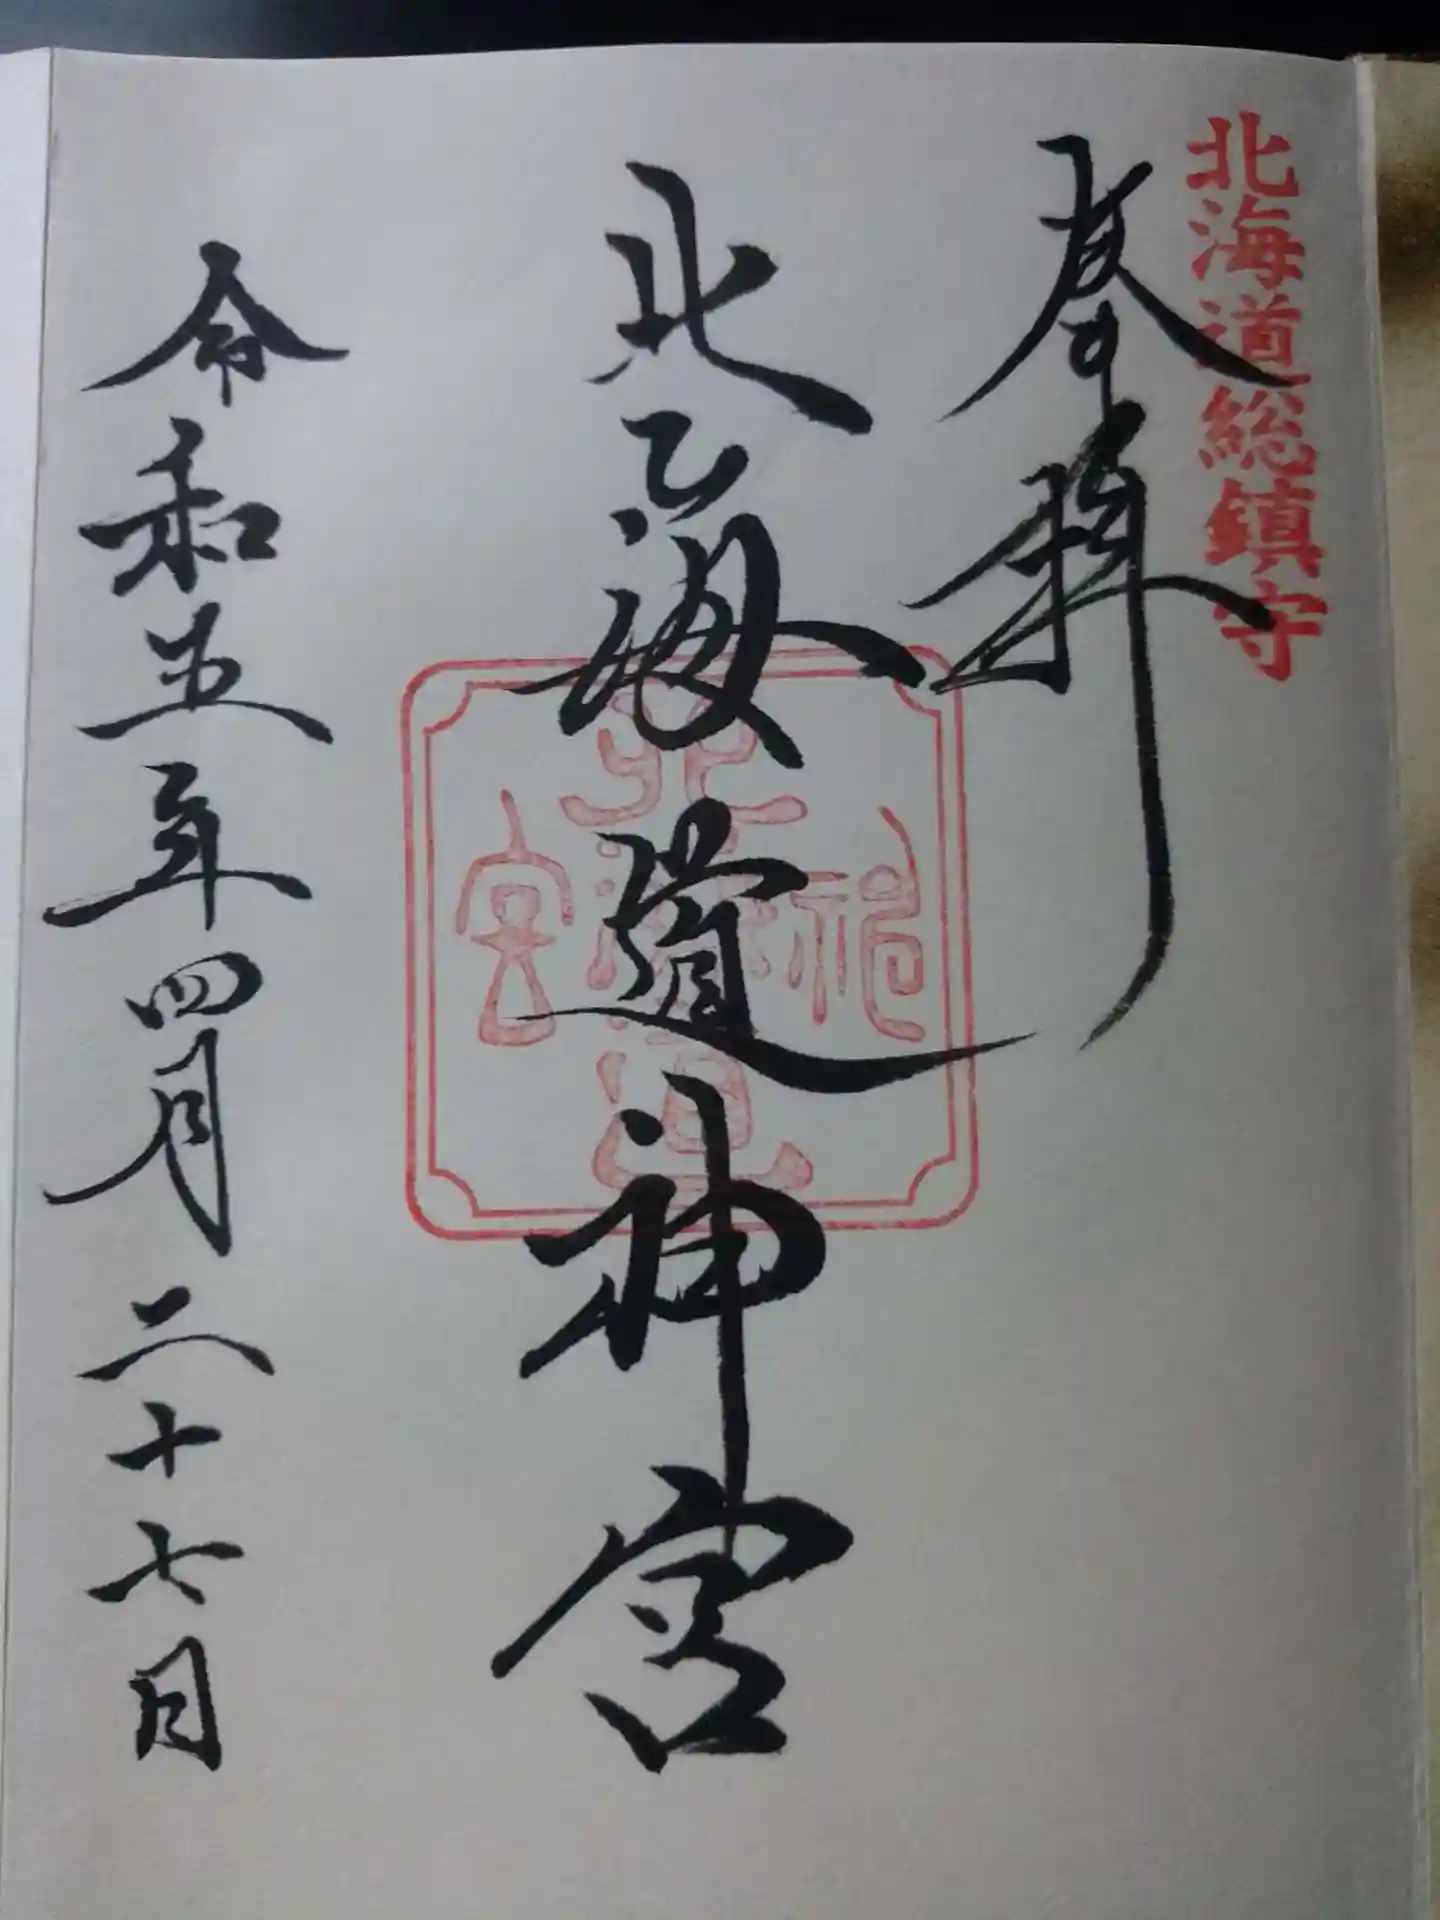 北海道総鎮守
奉拝
北海道神宮
北海道神宮
令和五年四月二十七日